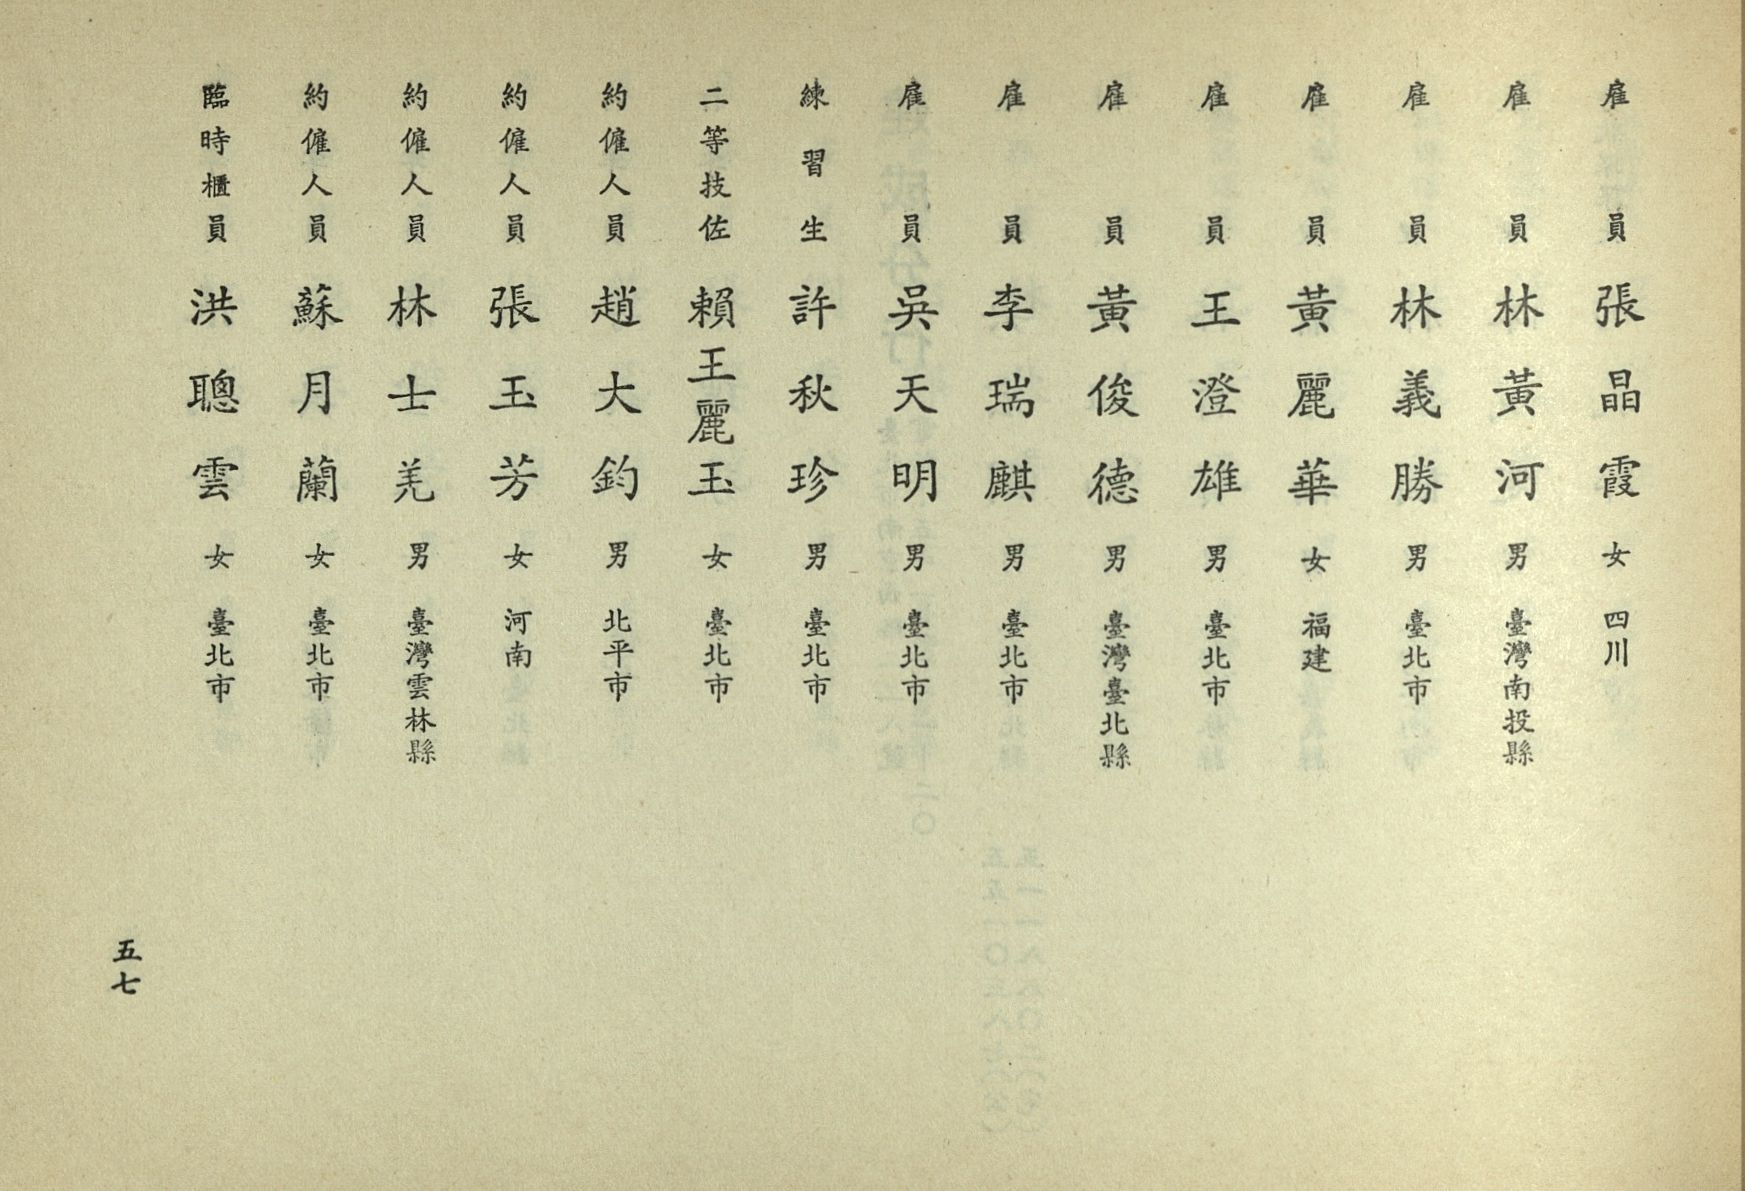 雇員 張晶霞 女 四川
雇員 林黃河 男 臺灣南投縣
雇員 林義勝 男 臺北市
雇員 黃麗華 女 福建
雇員 王澄雄 男 臺北市
雇員 黃俊德 男 臺灣臺北縣
雇員 李瑞麒 男 臺北市
雇員 吳天明 男 臺北市
練習生 許秋珍 男 臺北市
二等技佐 賴王麗玉 女 臺北市
約僱人員 趙大鈞 男 北平市
約僱人員 張玉芳 女 河南
約僱人員 林士羌 男 臺灣雲林縣
約僱人員 蘇月蘭 女 臺北市
臨時櫃員 洪聰雲 女 臺北市
五七